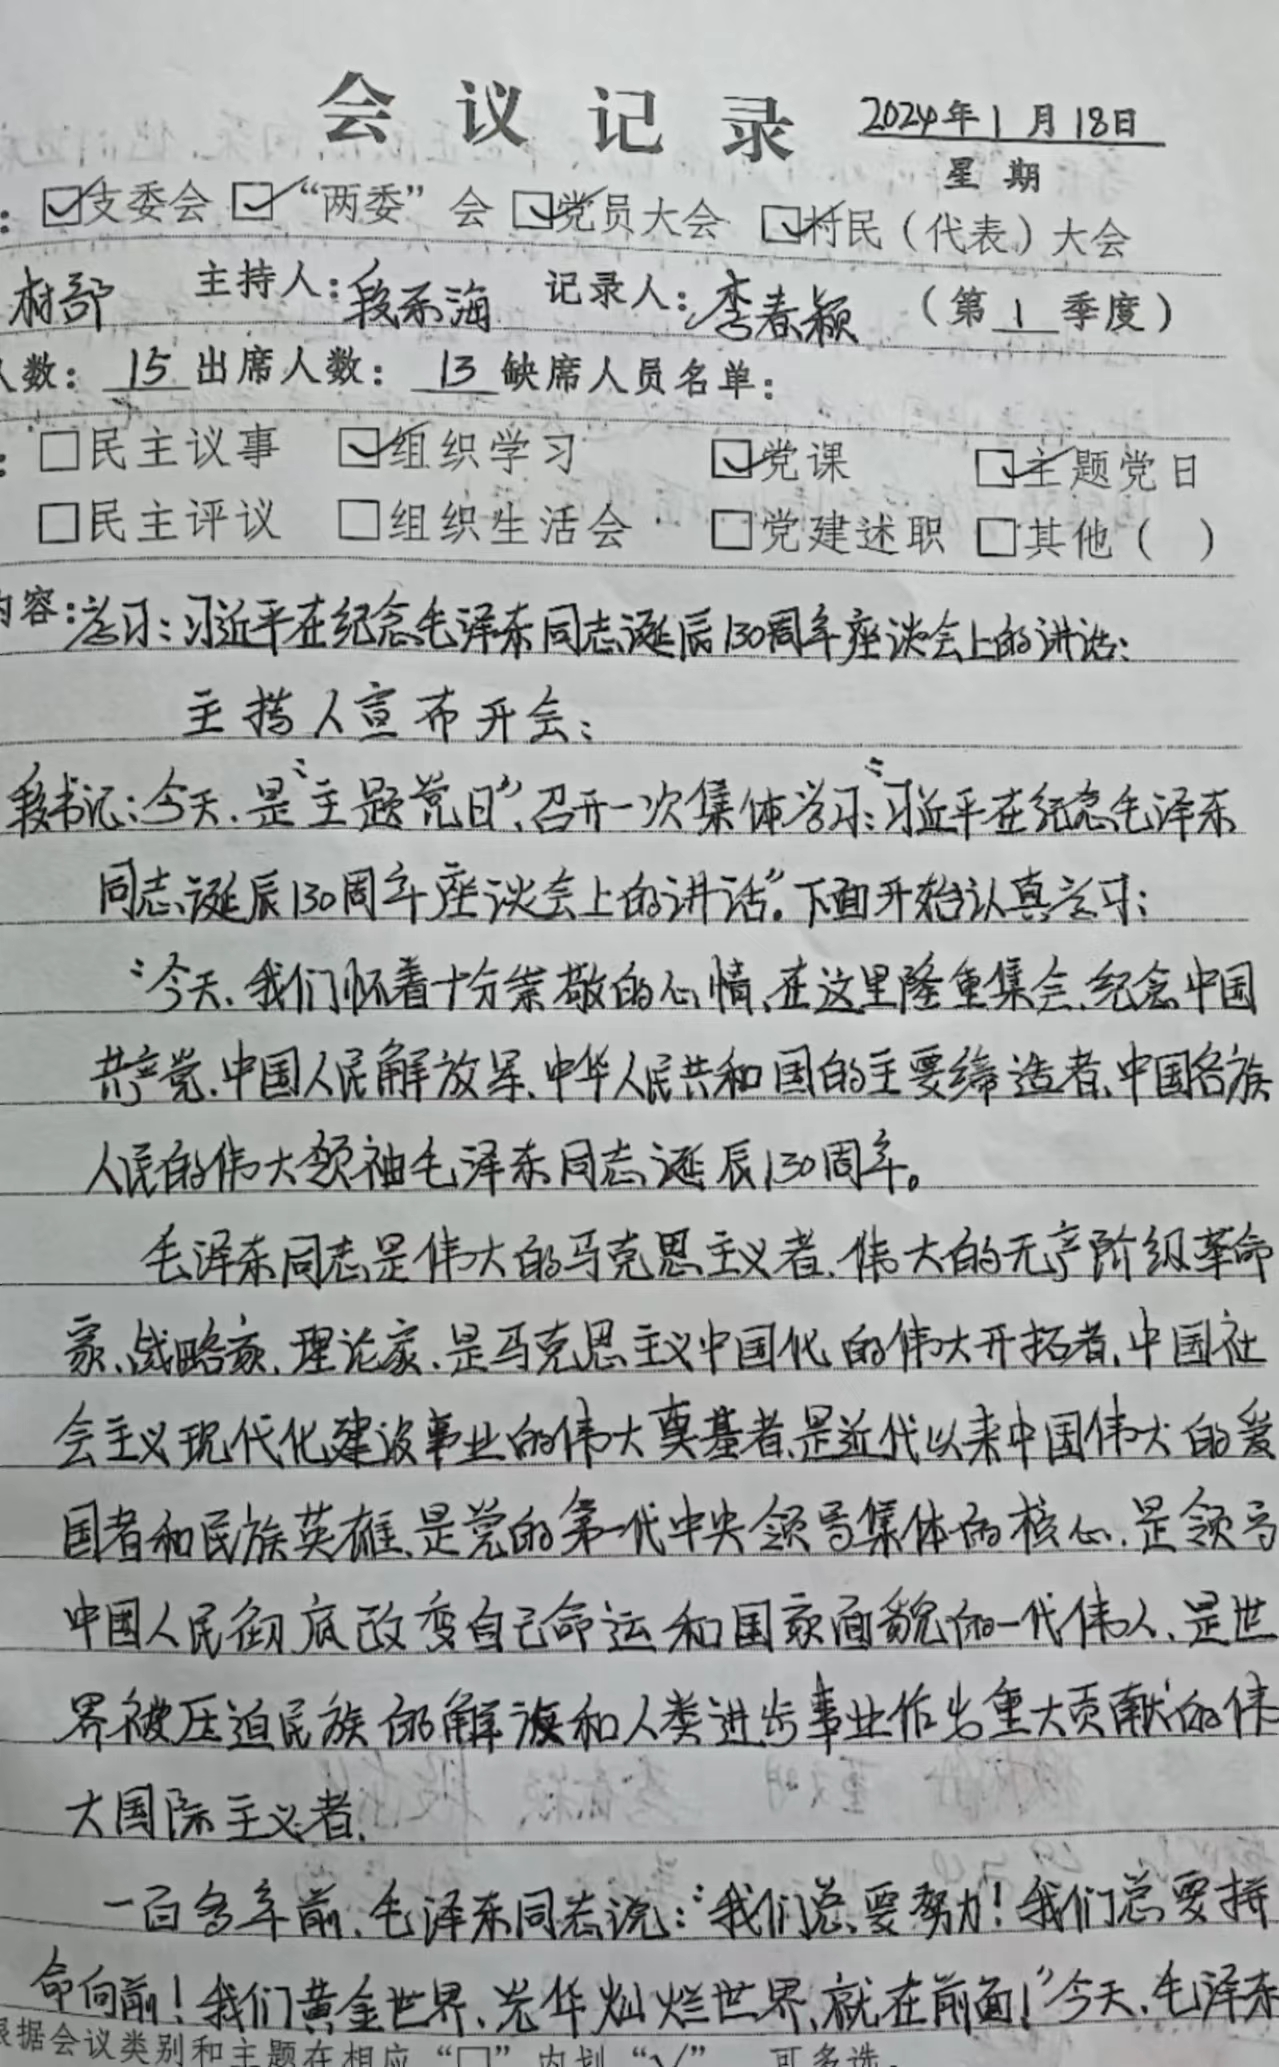 会议记录 2024年1月18日
星期
: ☑支委会 ☑“两委”会 ☑党员大会 ☑村民（代表）大会
村部 主持人:段示海 记录人:李春颖 （第1季度）
人数: 15 出席人数: 13 缺席人员名单:
: □民主议事 ☑组织学习 ☑党课 ☑主题党日
□民主评议 □组织生活会 □党建述职 □其他（ ）
内容:学习:习近平在纪念毛泽东同志诞辰130周年座谈会上的讲话:
主持人宣布开会:
段书记:今天、是“主题党日”、召开一次集体学习:“习近平在纪念毛泽东
同志诞辰130周年座谈会上的讲话”。下面开始认真学习:
“今天、我们怀着十分崇敬的心情、在这里隆重集会、纪念中国
共产党、中国人民解放军、中华人民共和国的主要缔造者、中国各族
人民的伟大领袖毛泽东同志诞辰130周年。
毛泽东同志是伟大的马克思主义者、伟大的无产阶级革命
家、战略家、理论家、是马克思主义中国化的伟大开拓者、中国社
会主义现代化建设事业的伟大奠基者、是近代以来中国伟大的爱
国者和民族英雄、是党的第一代中央领导集体的核心、是领导
中国人民彻底改变自己命运和国家面貌的一代伟人、是世
界被压迫民族的解放和人类进步事业作出重大贡献的伟
大国际主义者、
一百多年前、毛泽东同志说:“我们总要努力！我们总要拼
命向前！我们黄金世界、光华灿烂世界、就在前面！”今天、毛泽东
根据会议类别和主题在相应“□”内划“√”　可多选。